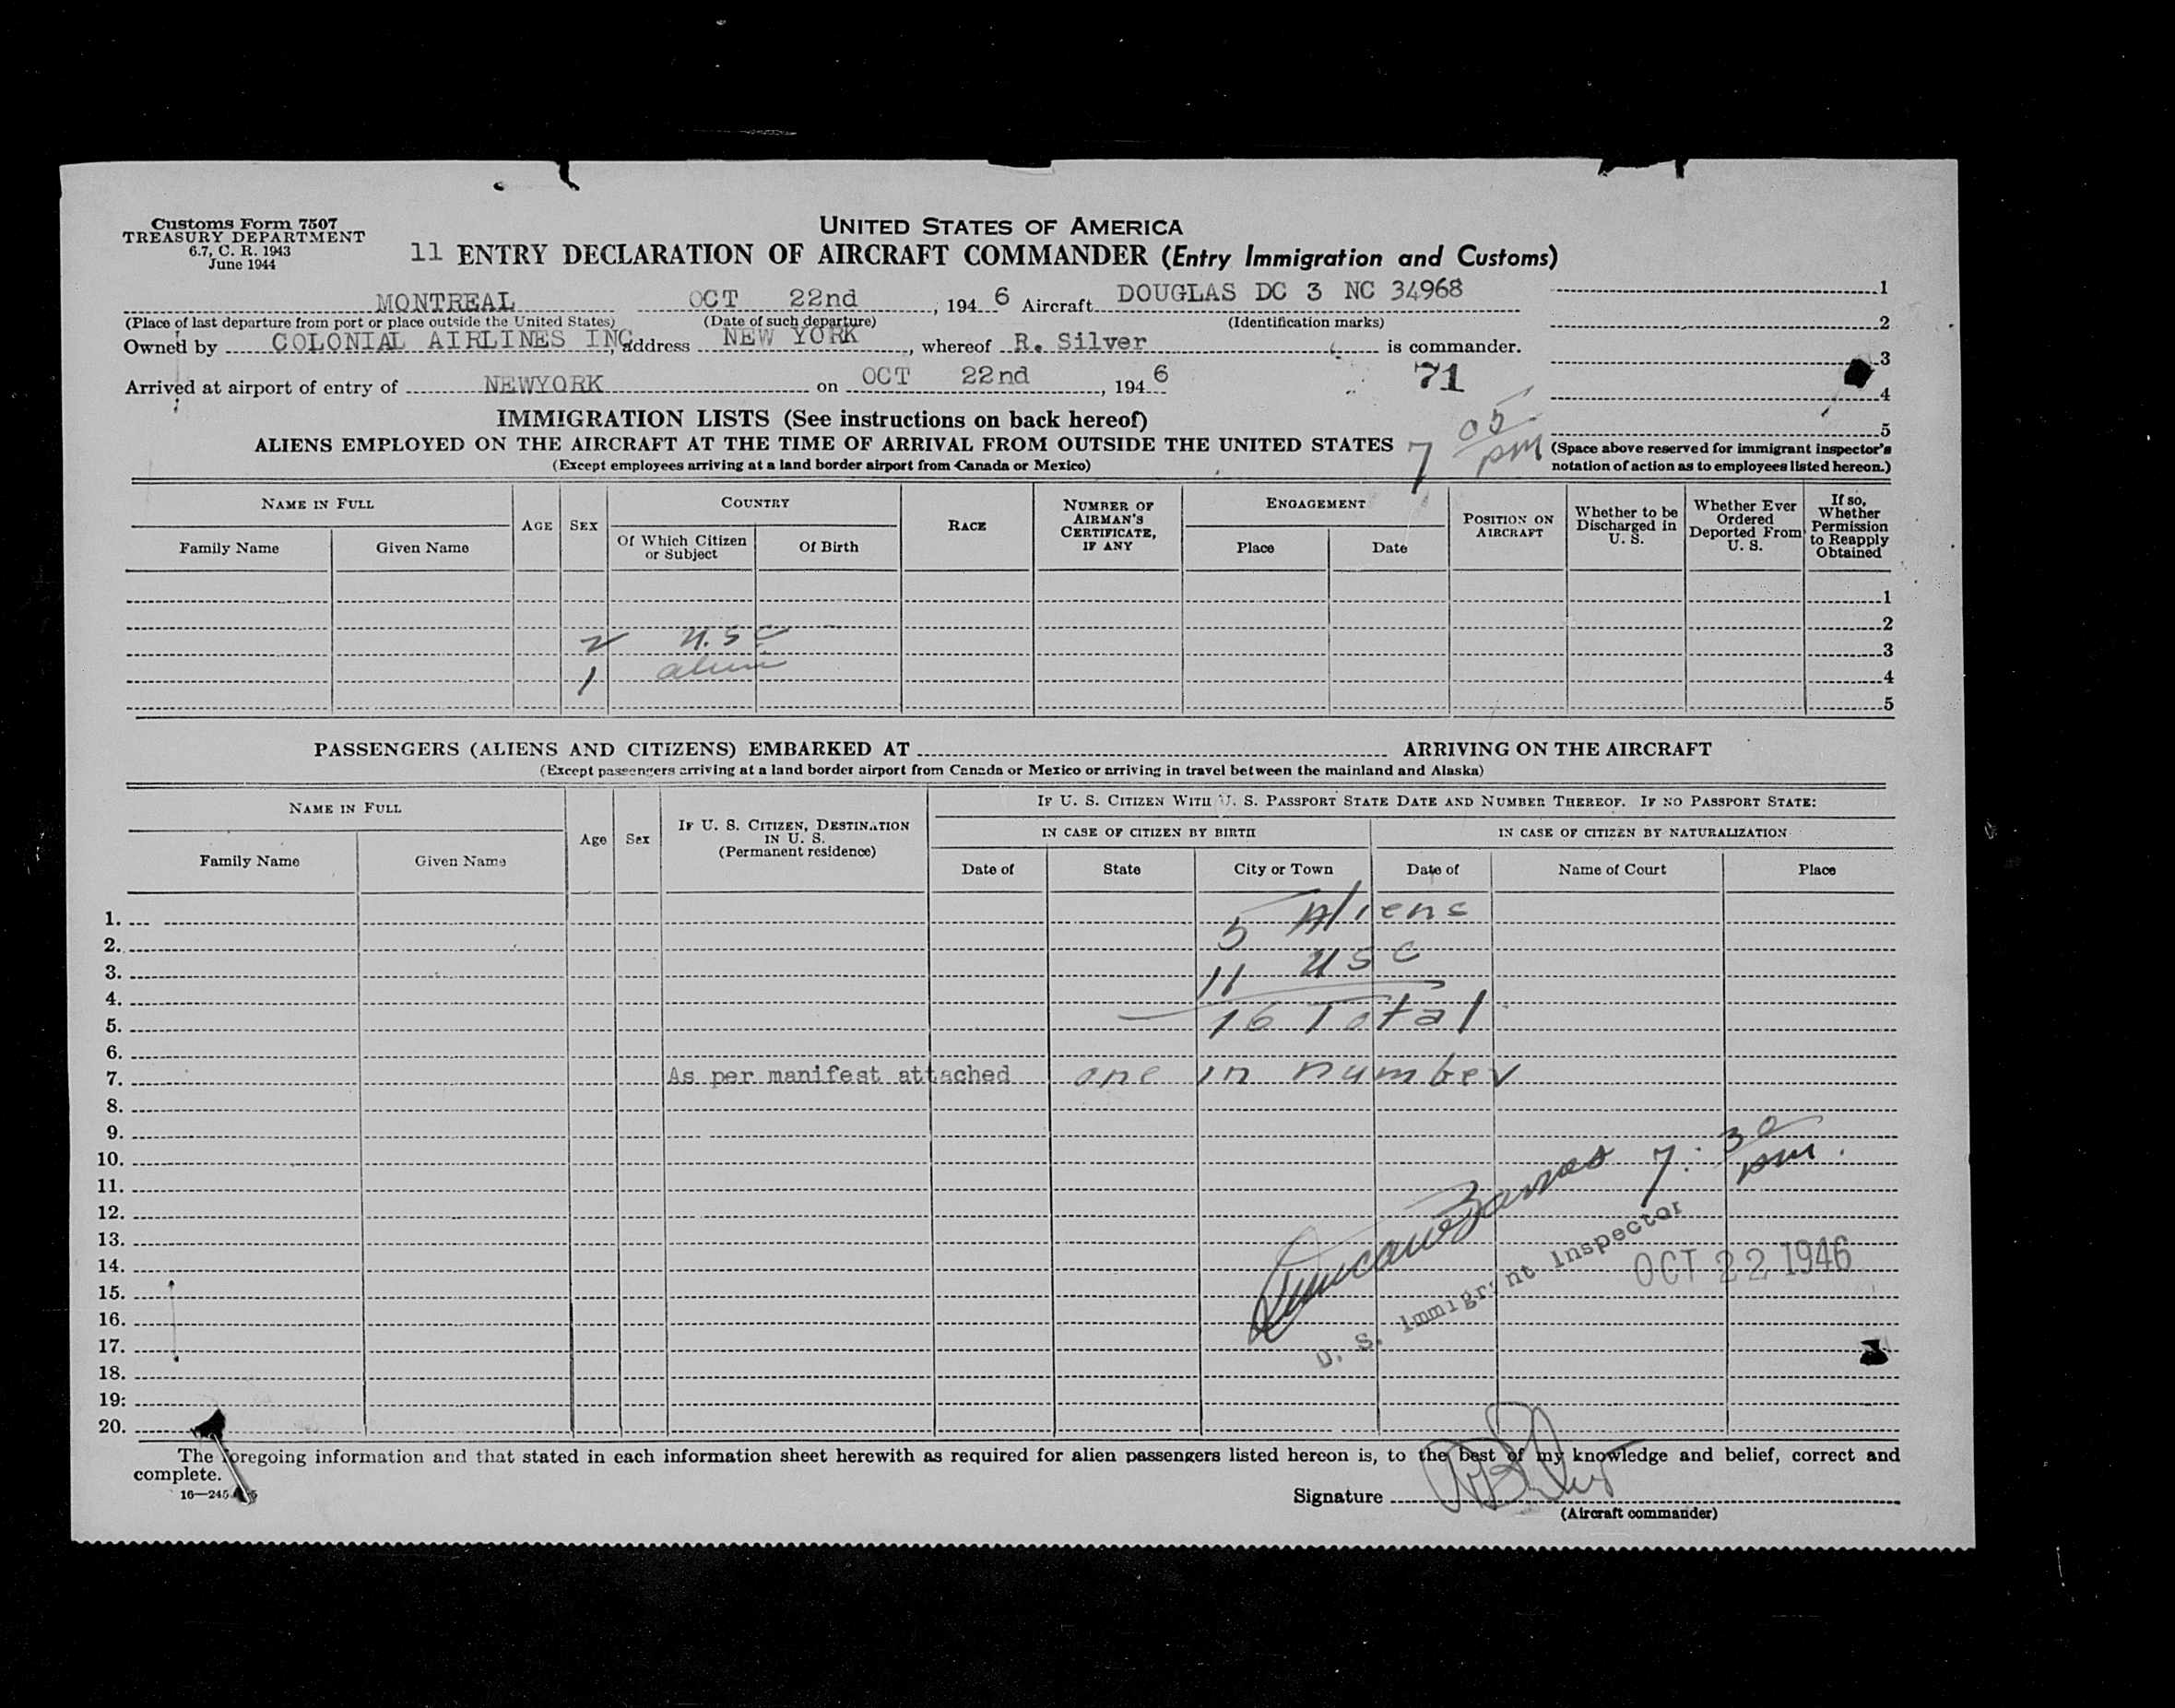 Customs Form 7507
TREASURY DEPARTMENT
6.7, C. R. 1943
June 1944
UNITED STATES OF AMERICA
11 ENTRY DECLARATION OF AIRCRAFT COMMANDER (Entry Immigration and Customs)
MONTREAL OCT 22nd, 1946 Aircraft DOUGLAS DC 3 NC 34968
(Place of last departure from port or place outside the United States) (Date of such departure) (Identification marks)
Owned by COLONIAL AIRLINES INC, address NEW YORK, whereof R. Silver is commander.
Arrived at airport of entry of NEWYORK on OCT 22nd, 1946
71
1
2
3
4
5
7 05 pm
(Space above reserved for immigrant inspector's notation of action as to employees listed hereon.)
IMMIGRATION LISTS (See instructions on back hereof)
ALIENS EMPLOYED ON THE AIRCRAFT AT THE TIME OF ARRIVAL FROM OUTSIDE THE UNITED STATES
(Except employees arriving at a land border airport from Canada or Mexico)
NAME IN FULL
Family Name Given Name
AGE SEX
COUNTRY
Of Which Citizen or Subject Of Birth
RACE
NUMBER OF AIRMAN'S CERTIFICATE, IF ANY
ENGAGEMENT
Place Date
POSITION ON AIRCRAFT
Whether to be Discharged in U. S.
Whether Ever Ordered Deported From U. S.
If so, Whether Permission to Reapply Obtained
1
2
2 U.S C
3
1 alien
4
5
PASSENGERS (ALIENS AND CITIZENS) EMBARKED AT ARRIVING ON THE AIRCRAFT
(Except passengers arriving at a land border airport from Canada or Mexico or arriving in travel between the mainland and Alaska)
NAME IN FULL
Family Name Given Name
Age Sex
IF U. S. CITIZEN, DESTINATION IN U. S.
(Permanent residence)
IF U. S. CITIZEN WITH U. S. PASSPORT STATE DATE AND NUMBER THEREOF. IF NO PASSPORT STATE:
IN CASE OF CITIZEN BY BIRTH IN CASE OF CITIZEN BY NATURALIZATION
Date of State City or Town Date of Name of Court Place
1. 5 Aliens
2.
3. 11 USC
4.
5. 16 Total
6.
7. As per manifest attached one in number
8.
9.
10. 7:30 pm.
11.
12.
13.
14. OCT 22 1946
15. U. S. Immigrant Inspector
16.
17.
18.
19.
20.
The foregoing information and that stated in each information sheet herewith as required for alien passengers listed hereon is, to the best of my knowledge and belief, correct and
complete.
Signature
(Aircraft commander)